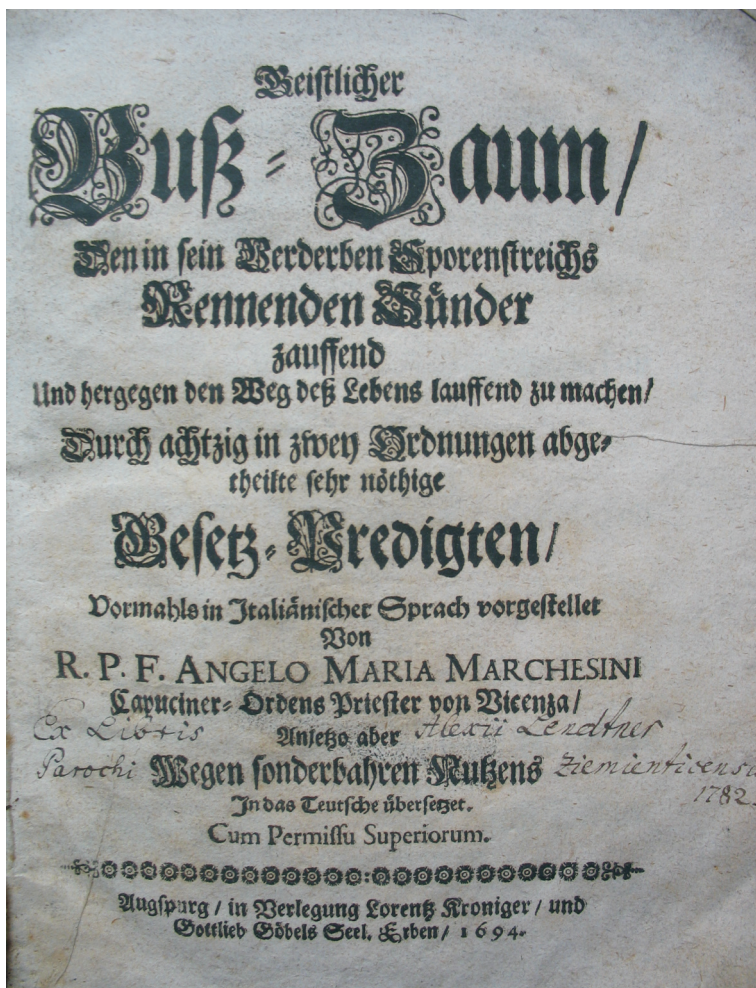 Geistlicher
Buß-Zaum/
Den in sein Verderben Sporenstreichs
Rennenden Sünder
zauffend
Und hergegen den Weg deß Lebens lauffend zu machen/
Durch achtzig in zwey Ordnungen abge-
theilte sehr nöthige
Gesetz-Predigten/
Vormahls in Italiänischer Sprach vorgestellet
Von
R. P. F. ANGELO MARIA MARCHESINI
Capuciner-Ordens Priester von Vicenza/
Anjetzo aber
Ex Libris Alexii Lendtner
Wegen sonderbahren Nutzens
Parochi Ziemienticensis
1782
In das Teutsche übersetzet.
Cum Permissu Superiorum.
Augspurg / in Verlegung Lorentz Kroniger / und
Gottlieb Göbels Seel. Erben / 1694.